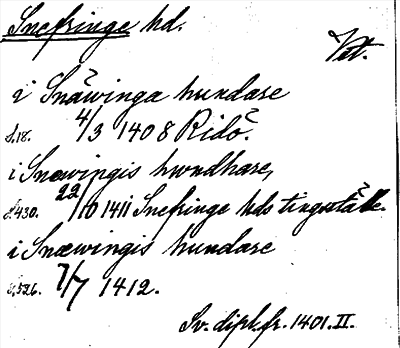 Snefringe hd.
Vst.
i Snäwinga hundare
s.18. 4/3 1408 Ridö.
i Snæwingis hwndhare,
s.430. 22/10 1411 Snefringe hds tingställe.
i Snæwingis hundare
s.526. 7/7 1412.
Sv. dipl. fr. 1401. II.